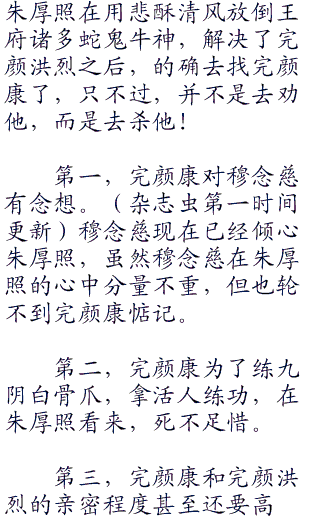 朱厚照在用悲酥清风放倒王
府诸多蛇鬼牛神，解决了完
颜洪烈之后，的确去找完颜
康了，只不过，并不是去劝
他，而是去杀他！
第一，完颜康对穆念慈
有念想。（杂志虫第一时间
更新）穆念慈现在已经倾心
朱厚照，虽然穆念慈在朱厚
照的心中分量不重，但也轮
不到完颜康惦记。
第二，完颜康为了练九
阴白骨爪，拿活人练功，在
朱厚照看来，死不足惜。
第三，完颜康和完颜洪
烈的亲密程度甚至还要高